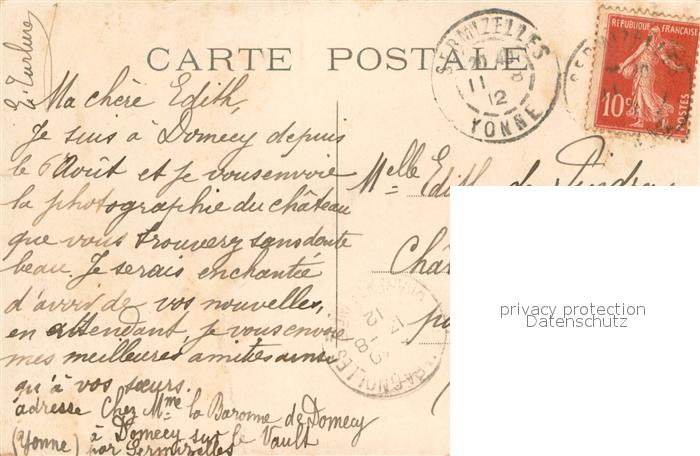 CARTE POSTALE
SERMIZELLES
11 8
12
YONNE
REPUBLIQUE FRANÇAISE
10c
POSTES
Ma chère Edith,
Je suis à Domecy depuis
le Août et je vous envoie
la photographie du château
que vous trouverez sans doute
beau. Je serais enchantée
d'avoir de vos nouvelles,
en attendant, je vous envoie
mes meilleures amitiés ainsi
qu'à vos sœurs.
adresse Chez Mme la Baronne de Domecy
à Domecy sur le Vault
(Yonne) par Sermizelles
Melle Edith de
Chât
privacy protection
Datenschutz